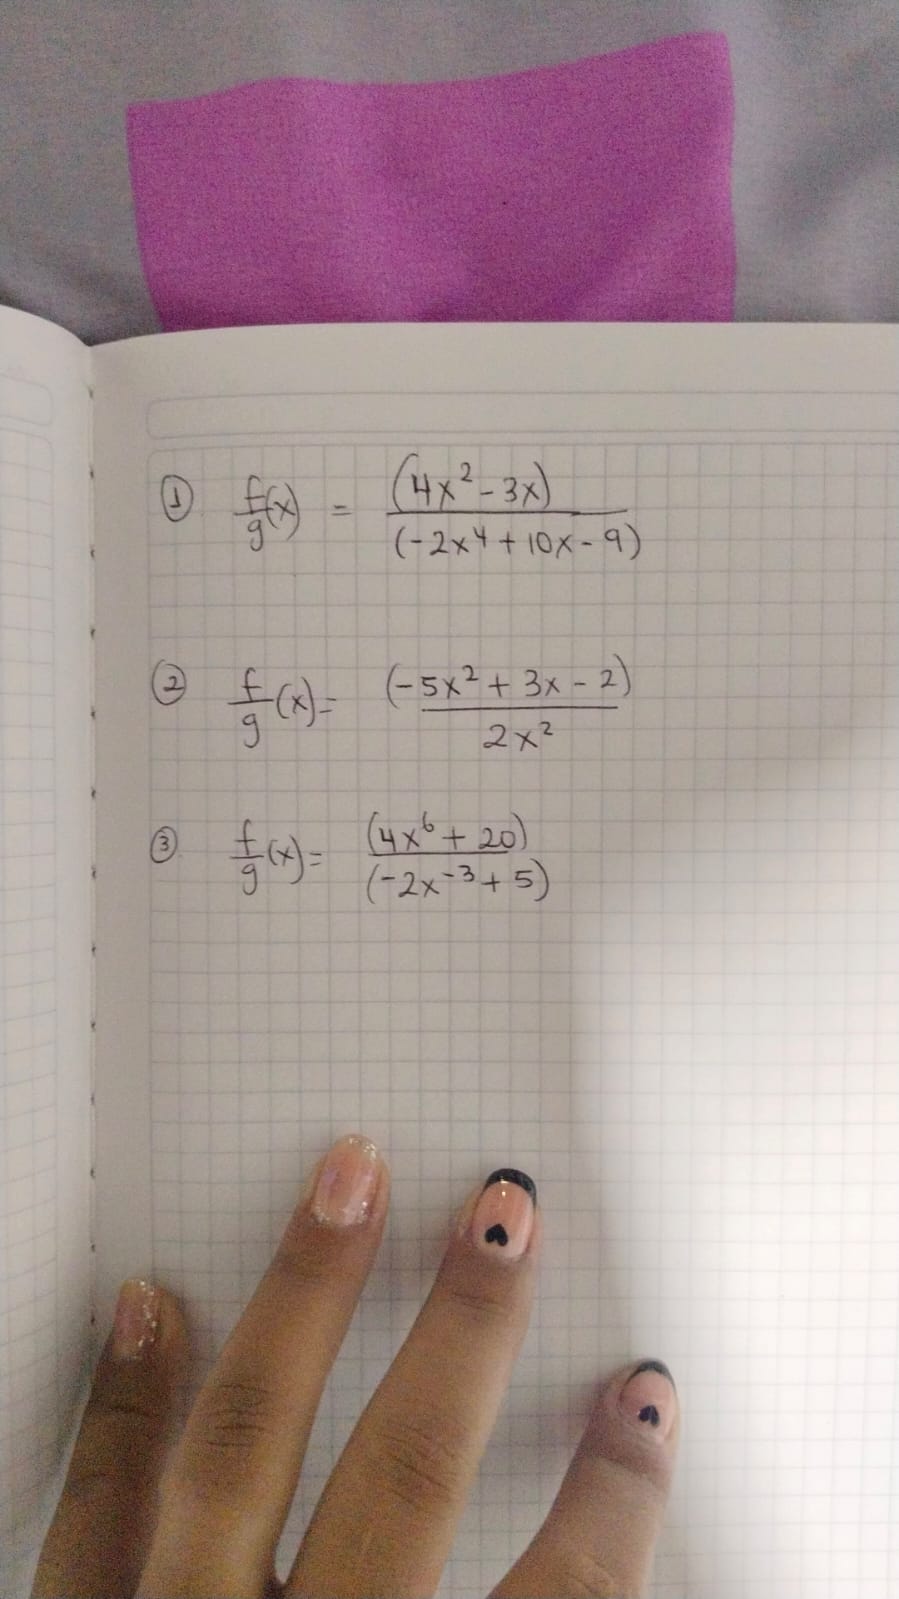 ① f/g(x) = (4x² - 3x) / (-2x⁴ + 10x - 9)
② f/g (x) = (-5x² + 3x - 2) / 2x²
③ f/g (x) = (4x⁶ + 20) / (-2x⁻³ + 5)